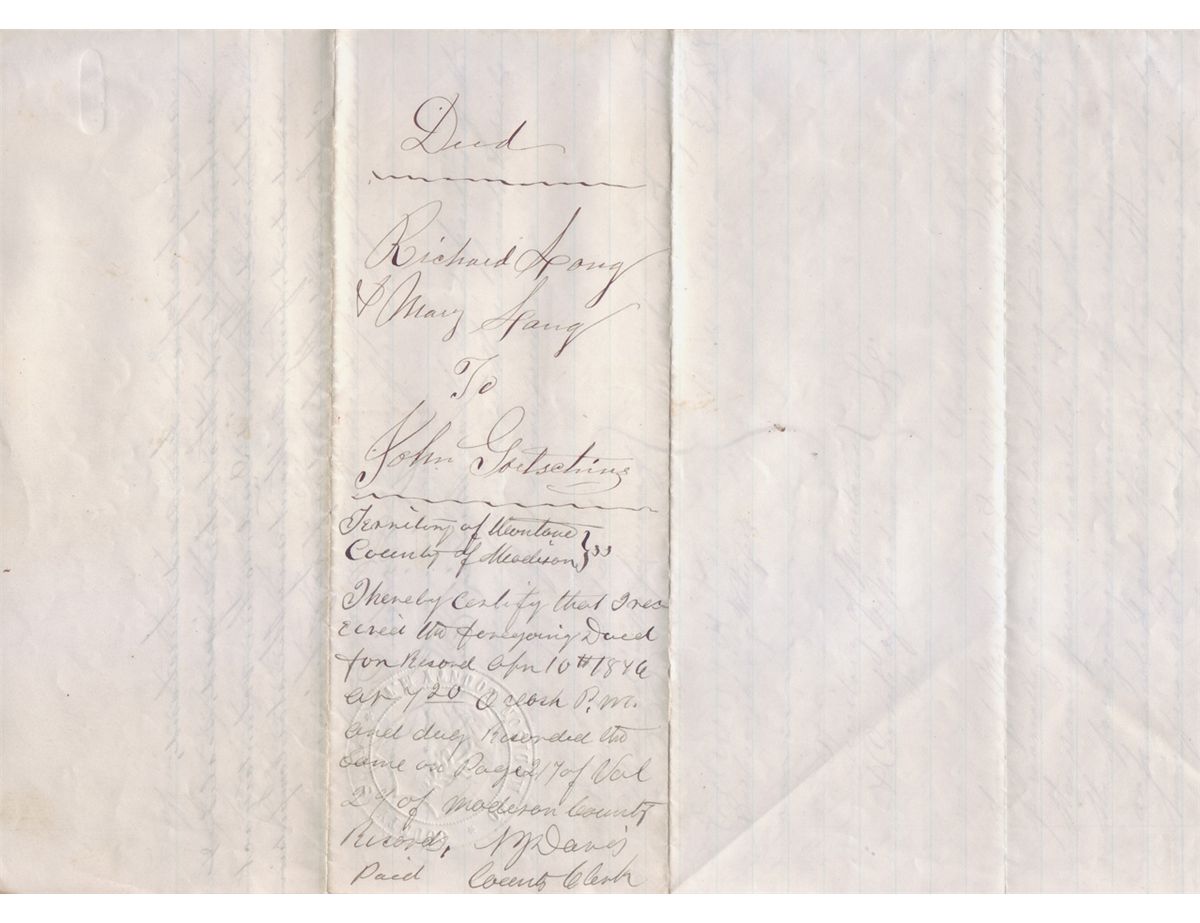 Deed
Richard Hong
& Mary Hang
To
John Goetsching
Territory of Montana
County of Madison } ss
I hereby Certify that I rec
eived the foregoing Deed
for Record Apr 10th 1876
at 7 20 O clock P.M.
and duly Recorded the
same on Page 217 of Vol
of Madison County
Records, Davis
Paid County Clerk